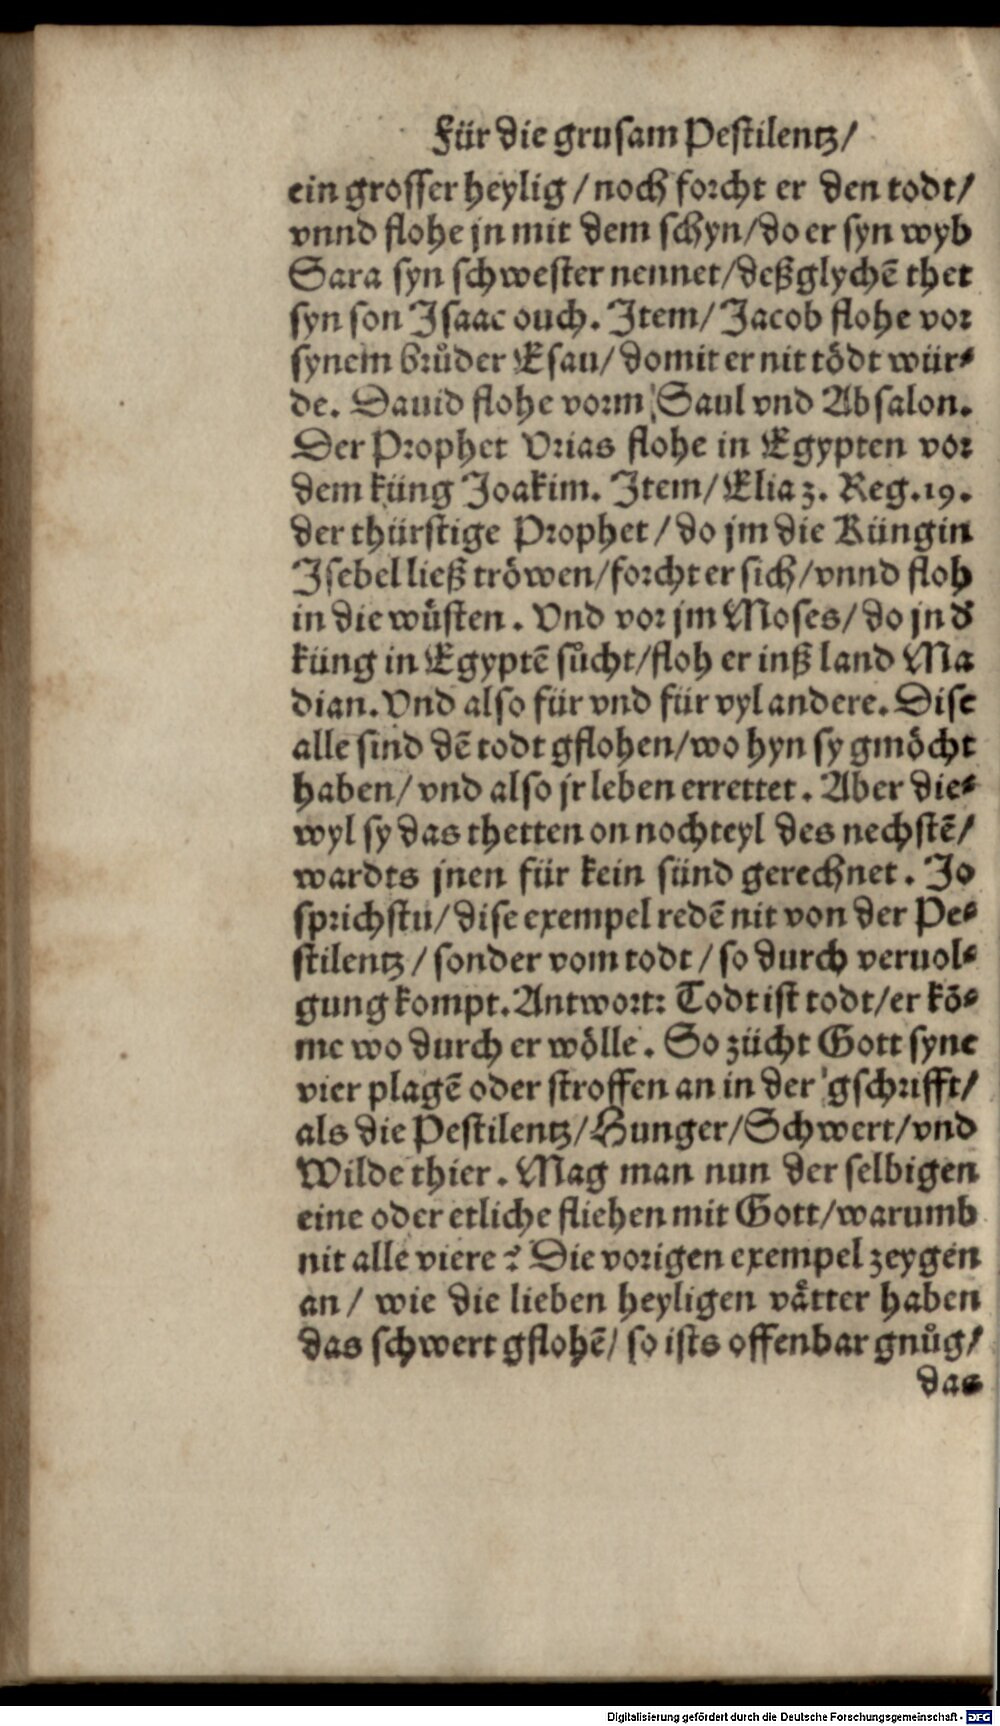 Für die grusam Pestilentz/
ein grosser heylig / noch forcht er den todt/
vnnd flohe jn mit dem schyn/do er syn wyb
Sara syn schwester nennet/deßglychē thet
syn son Isaac ouch. Item/ Jacob flohe vor
synem brůder Esau/ domit er nit tödt wür⸗
de. Dauid flohe vorm Saul vnd Absalon.
Der Prophet Vrias flohe in Egypten vor
dem küng Joakim. Item/ Elia 3. Reg.19.
der thürstige Prophet / do jm die Küngin
Isebel ließ tröwen/forcht er sich/vnnd floh
in die wůsten. Vnd vor jm Moses/ do jn d̕
küng in Egyptē sůcht/floh er inß land Ma
dian. Vnd also für vnd für vyl andere. Dise
alle sind dē todt gflohen/wo hyn sy gmöcht
haben/ vnd also jr leben errettet. Aber die⸗
wyl sy das thetten on nochteyl des nechstē/
wardts jnen für kein sünd gerechnet. Jo
sprichstu/ dise exempel redē nit von der Pe⸗
stilentz / sonder vom todt / so durch veruol⸗
gung kompt. Antwort: Todt ist todt/er kō⸗
me wo durch er wölle. So zücht Gott syne
vier plagē oder stroffen an in der gschrifft/
als die Pestilentz/Hunger/Schwert/vnd
Wilde thier. Mag man nun der selbigen
eine oder etliche fliehen mit Gott/warumb
nit alle viere? Die vorigen exempel zeygen
an/ wie die lieben heyligen vätter haben
das schwert gflohē/ so ists offenbar gnůg/
das
Digitalisierung gefördert durch die Deutsche Forschungsgemeinschaft - DFG